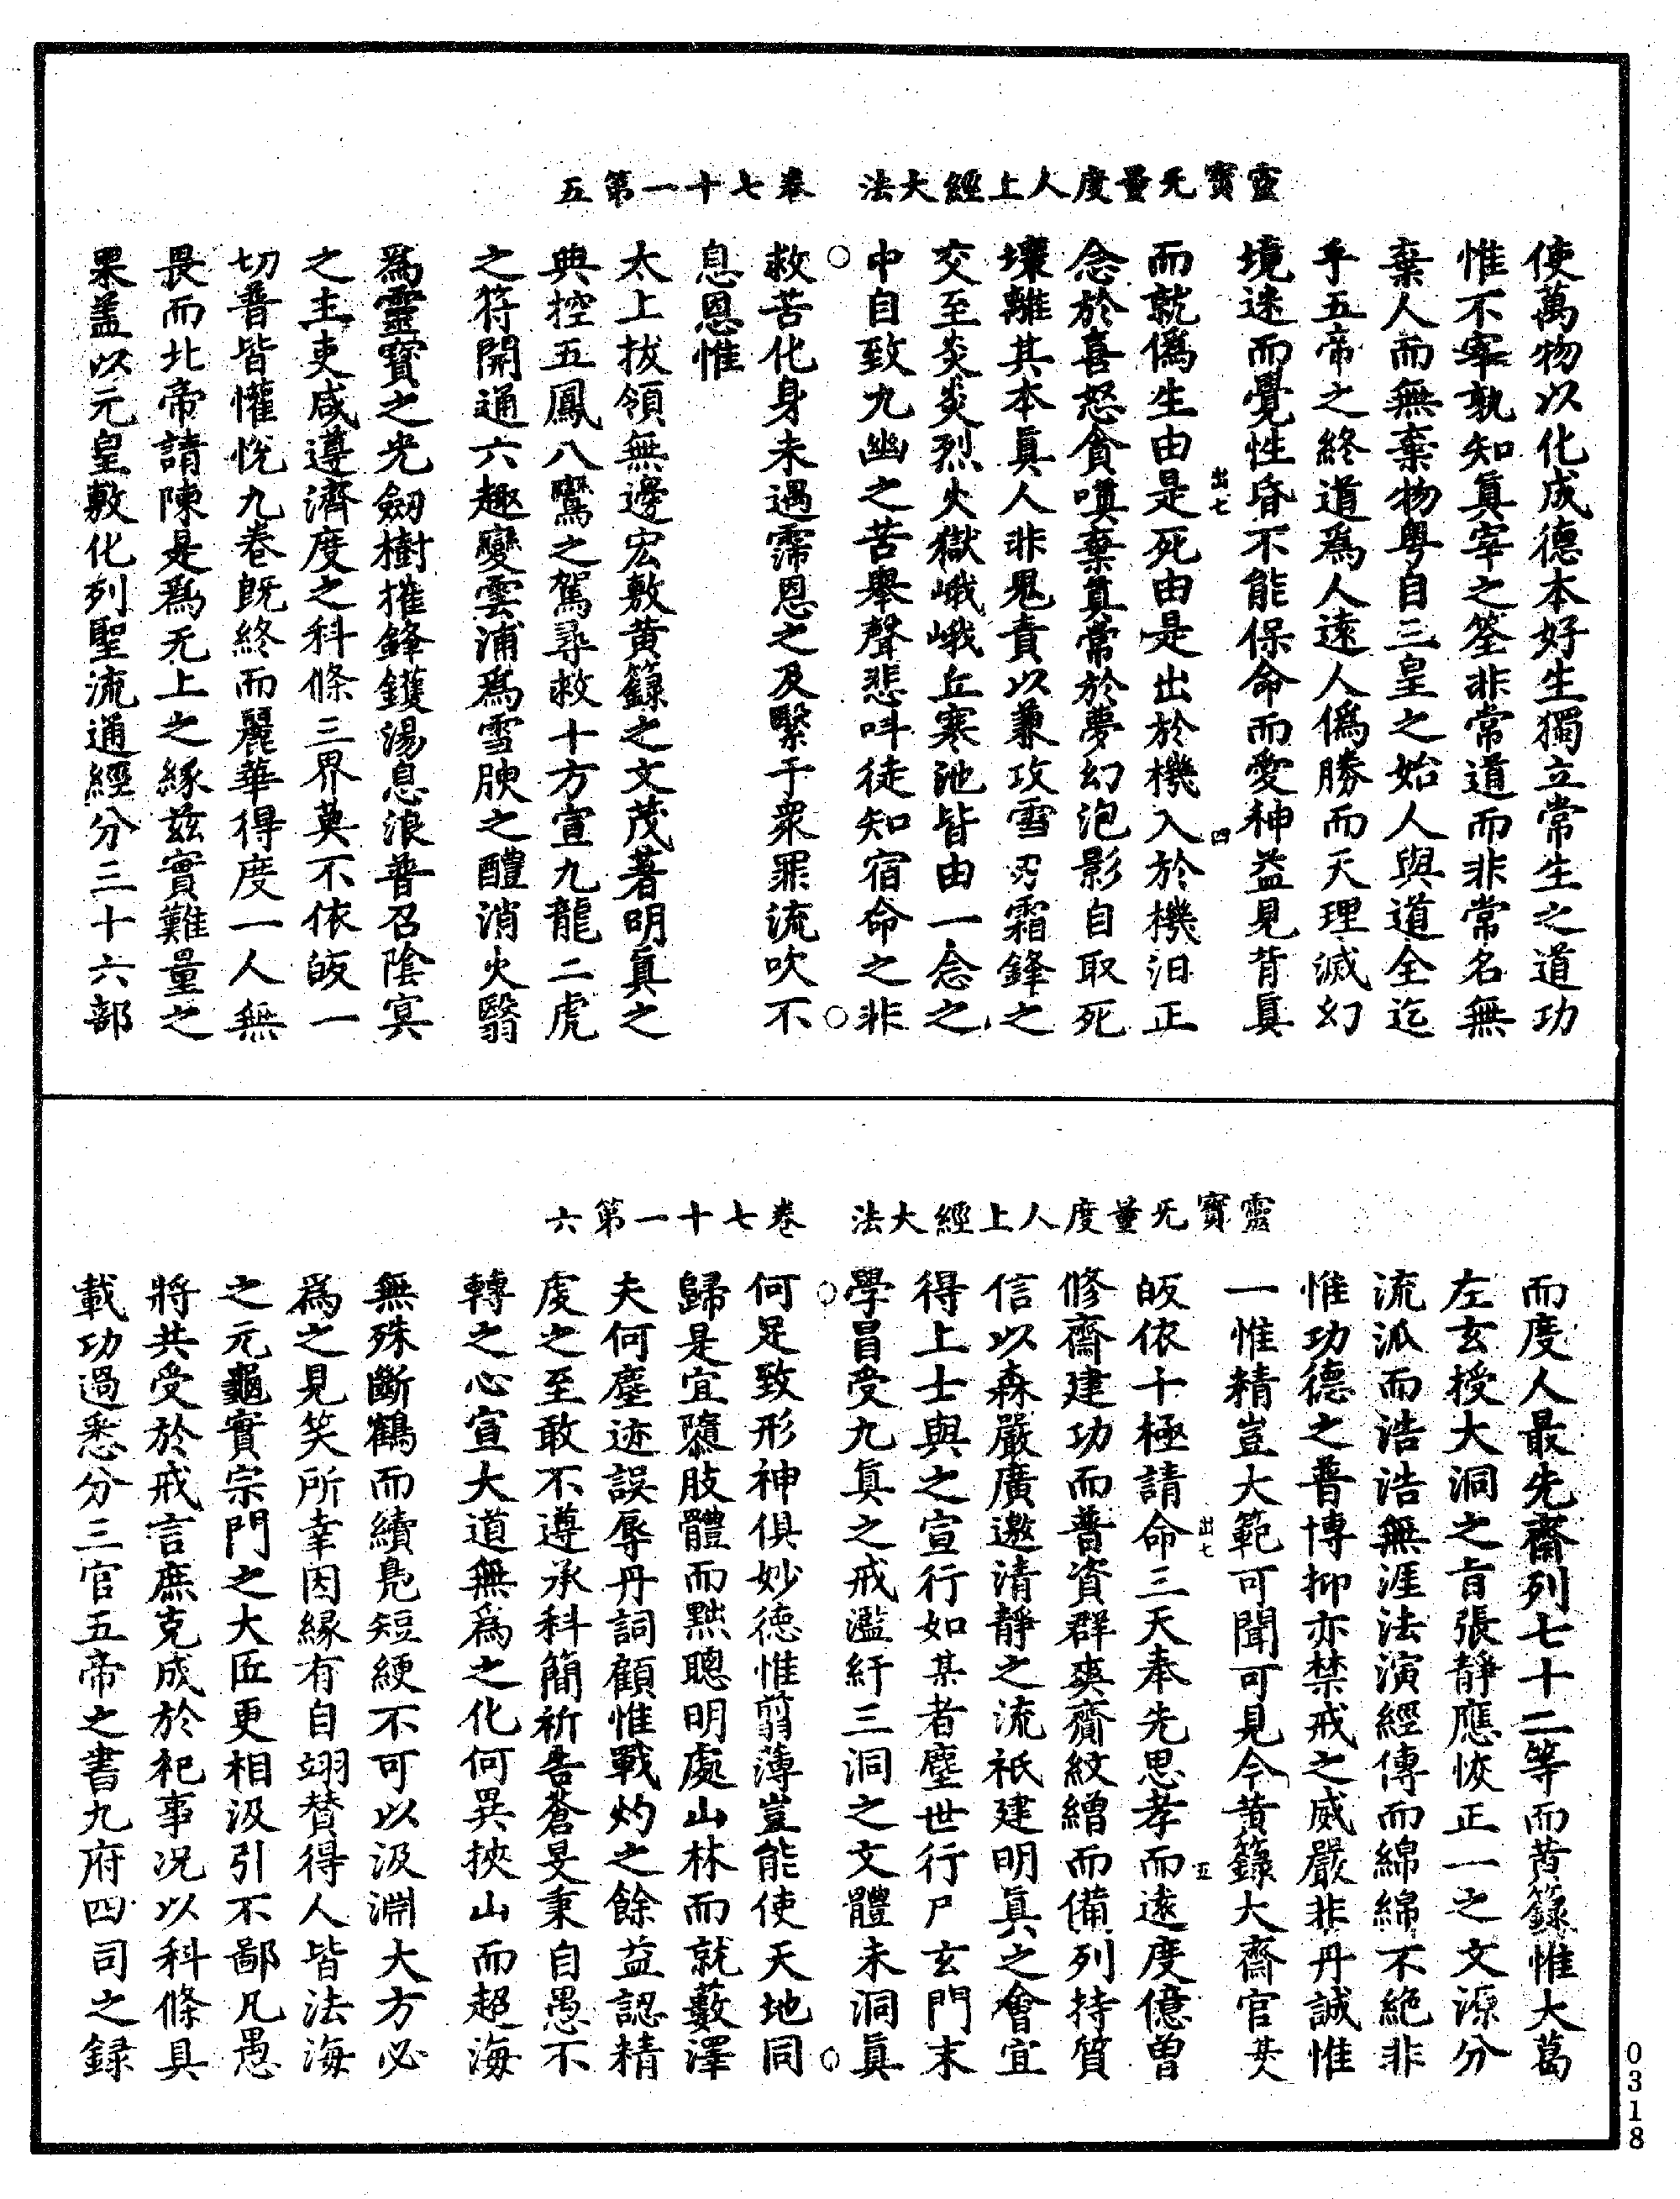 靈寶无量度人上經大法　卷七十一第五
使萬物以化成德本好生獨立常生之道功
惟不宰孰知真宰之筌非常道而非常名無
棄人而無棄物粤自三皇之始人與道全迄
乎五帝之終道爲人遠人僞勝而天理滅幻
境迷而覺性昏不能保命而愛神益見背真
出七　四
而就僞生由是死由是出於機入於機汨正
念於喜怒貪嗔棄真常於夢幻泡影自取死
壞離其本真人非鬼責以兼攻雪刃霜鋒之
交至炎炎烈火獄峨峨丘寒池皆由一念之
中自致九幽之苦舉聲悲叫徒知宿命之非
救苦化身未遇霈恩之及繫于衆罪流吹不
息恩惟
太上拔領無邊宏敷黃籙之文茂著明真之
典控五鳳八鸞之駕尋救十方宣九龍二虎
之符開通六趣變雲浦爲雪腴之醴消火翳
爲靈寶之光劒樹摧鋒鑊湯息浪普召陰冥
之主吏咸遵濟度之科條三界莫不依皈一
切普皆懽悅九卷旣終而麗華得度一人無
畏而北帝請陳是爲无上之緣兹實難量之
果盖以元皇敷化列聖流通經分三十六部
靈寶无量度人上經大法　卷七十一第六
而度人最先齋列七十二等而黃籙惟大葛
左玄授大洞之旨張靜應恢正一之文源分
流派而浩浩無涯法演經傳而綿綿不絶非
惟功德之普博抑亦禁戒之威嚴非丹誠惟
一惟精豈大範可聞可見今黃籙大齋官某
出七　五
皈依十極請命三天奉先思孝而遠度億曽
修齋建功而普資群爽齎紋繒而備列持質
信以森嚴廣邀清靜之流祇建明真之會宜
得上士與之宣行如某者塵世行尸玄門末
學冒受九真之戒濫紆三洞之文體未洞真
何足致形神俱妙德惟翦薄豈能使天地同
歸是宜隳肢體而黜聰明處山林而就藪澤
夫何塵迹誤辱丹詞顧惟戰灼之餘益認精
虔之至敢不遵承科簡祈告蒼旻秉自愚不
轉之心宣大道無爲之化何異挾山而超海
無殊斷鶴而續鳬短綆不可以汲淵大方必
爲之見笑所幸因緣有自翊賛得人皆法海
之元龜實宗門之大匠更相汲引不鄙凡愚
將共受於戒言庶克成於祀事况以科條具
載功過悉分三官五帝之書九府四司之録
0318